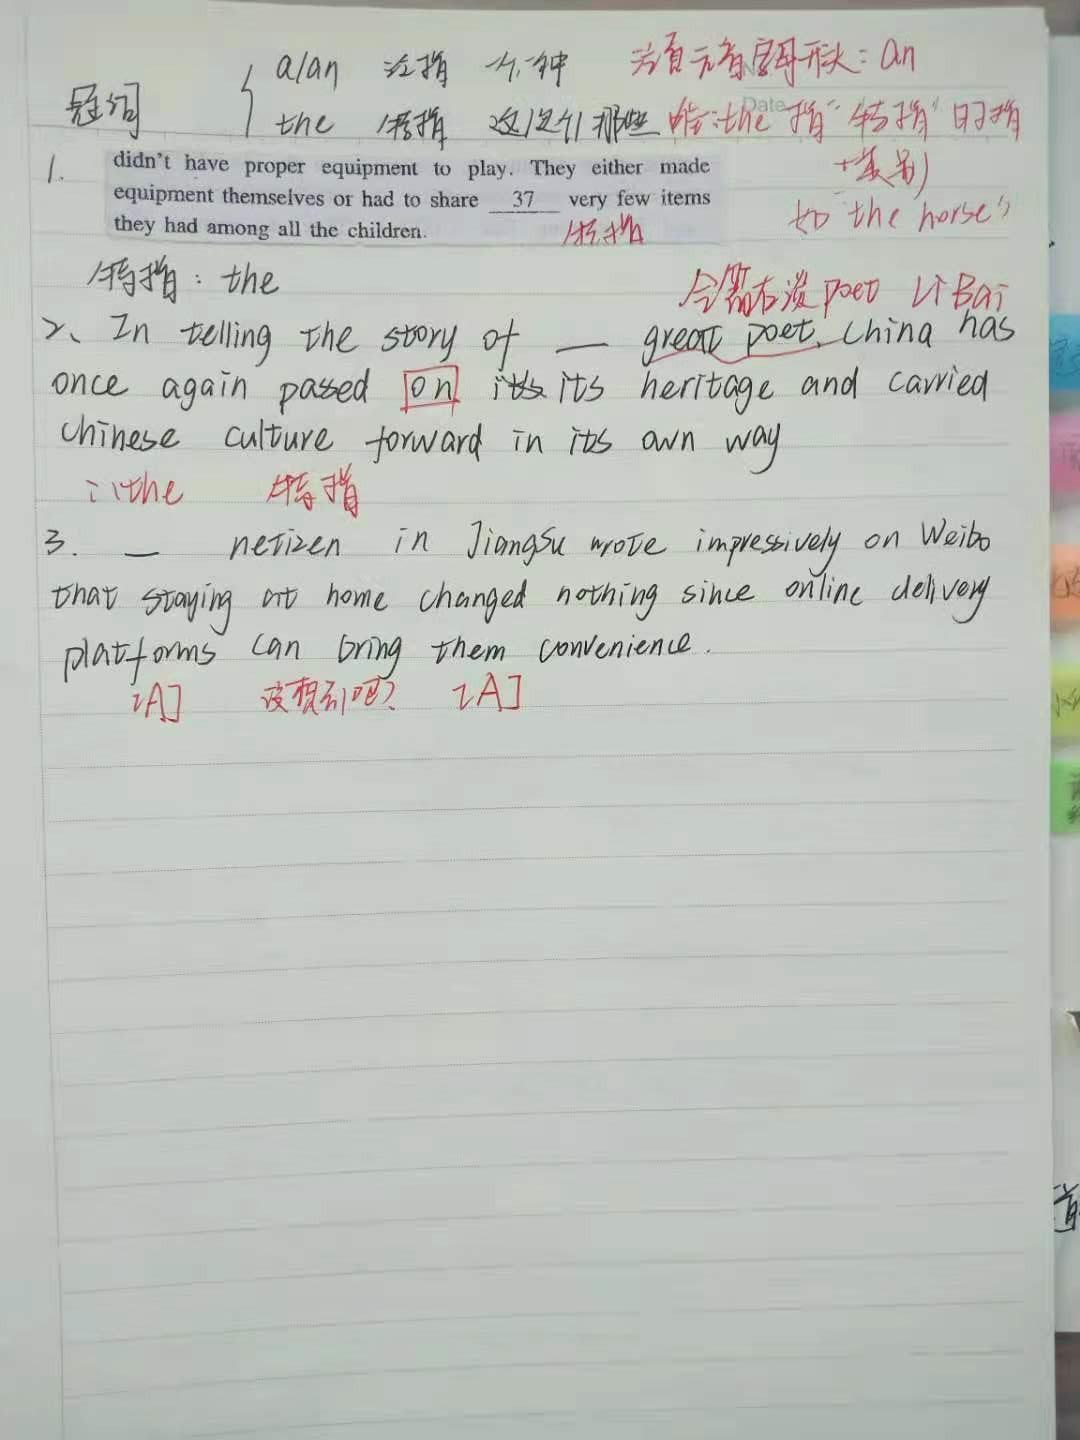 冠词
a/an 泛指 一个,一种 若首元音字母开头: an
the 特指 这/这个/那些 唯: the 指“特指”时,指
+类别
如 "the horse"
1.
didn't have proper equipment to play. They either made
equipment themselves or had to share 37 very few items
they had among all the children.
特指
特指: the
全篇在谈 poet Li Bai
2、In telling the story of ___ great poet, China has
once again passed on its its heritage and carried
Chinese culture forward in its own way
∴ the 特指
3. ___ netizen in Jiangsu wrote impressively on Weibo
that staying at home changed nothing since online delivery
platforms can bring them convenience.
[A] 没想到吧? [A]